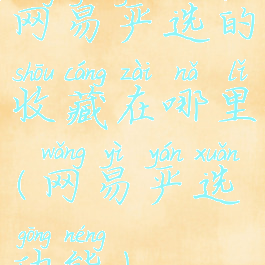 网易严选的
shōu cáng zài nǎ lǐ
收藏在哪里
wǎng yì yán xuǎn
(网易严选
gōng néng
功能)